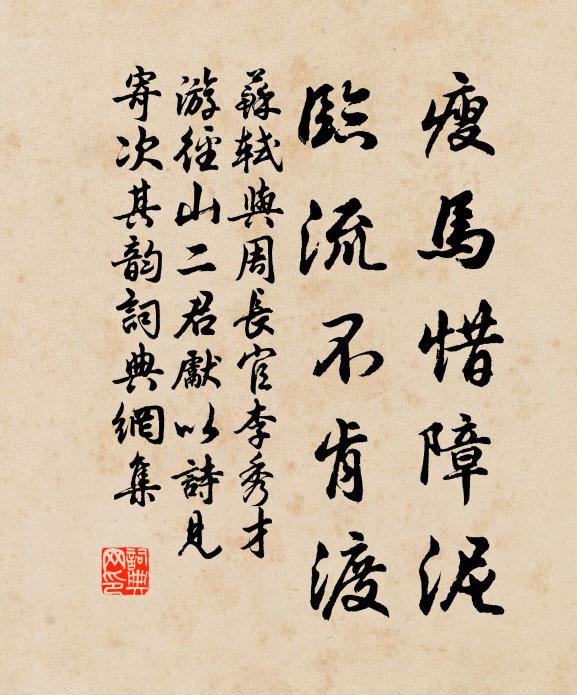 瘦馬惜障泥
臨流不肯渡
蘇軾與周長官李秀才
游徑山二君獻以詩見
寄次其韵詞典網集
詞典网印